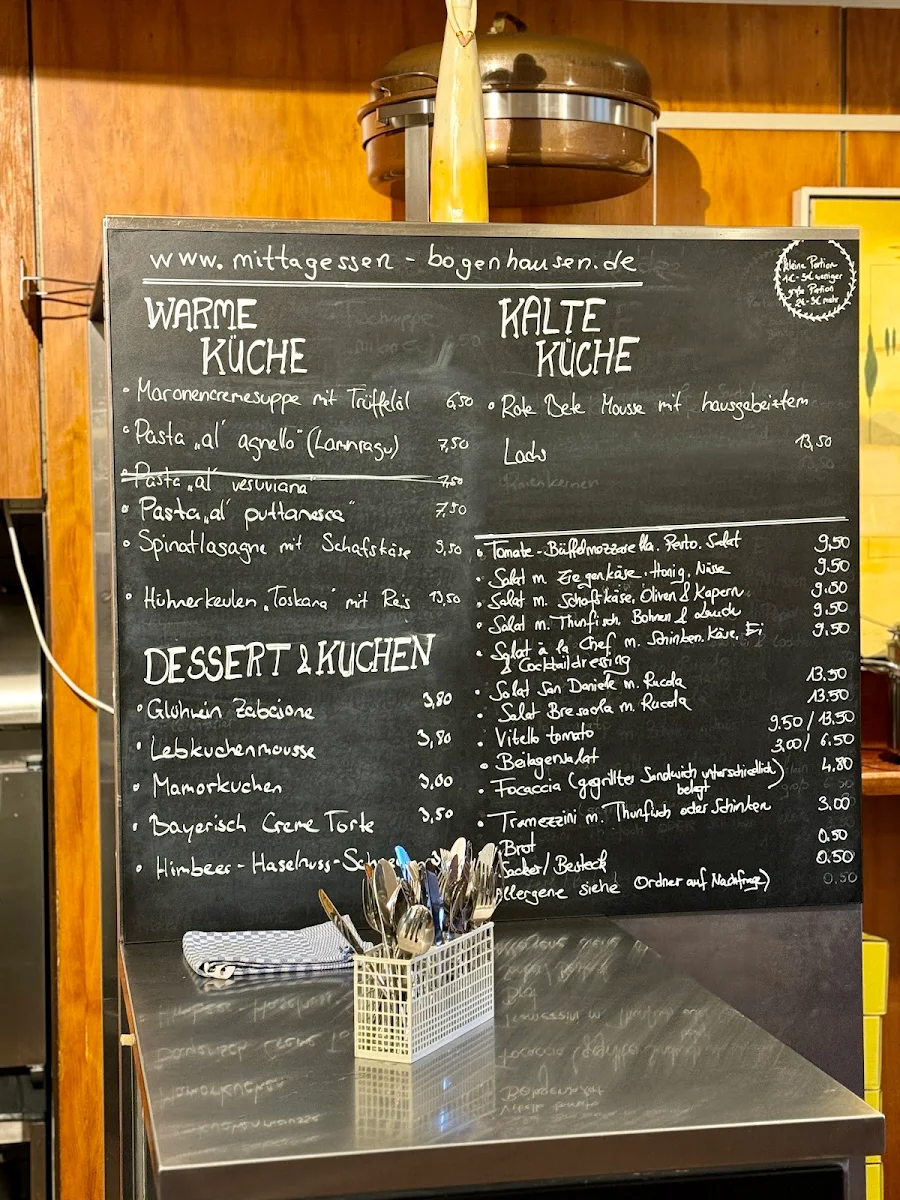 www.mittagessen-bogenhausen.de
kleine Portion
1€-3€ weniger
große Portion
2€-3€ mehr
WARME
KÜCHE
• Maronencremesuppe mit Trüffelöl 6,50
• Pasta „al' agnello" (Lammragu) 7,50
• Pasta „al' vesuviana 7,50
• Pasta „al' puttanesca" 7,50
• Spinatlasagne mit Schafskäse 9,50
• Hühnerkeulen „Toskana" mit Reis 13,50
DESSERT & KUCHEN
• Glühwein Zabaione 3,80
• Lebkuchenmousse 3,80
• Mamorkuchen 3,00
• Bayerisch Creme Torte 3,50
• Himbeer-Haselnuss-
KALTE
KÜCHE
• Rote Bete Mousse mit hausgebeiztem
Lachs 13,50
• Tomate-Büffelmozzarella. Pesto. Salat 9,50
• Salat m. Ziegenkäse. Honig. Nüsse 9.50
• Salat m. Schafskäse. Oliven & Kapern 9.50
• Salat m. Thunfisch. Bohnen & Lauch 9.50
• Salat à la Chef m. Schinken. Käse. Ei 9.50
& Cocktaildressing
• Salat San Daniele m. Rucola 13.50
• Salat Bresaola m. Rucola 13.50
• Vitello tomato 9.50/13,50
• Beilagensalat 3,00/6,50
• Focaccia (gegrilltes Sandwich unterschiedlich 4,80
belegt)
• Tramezzini m. Thunfisch oder Schinken 3,00
Brot 0,50
Becher/Besteck 0,50
Allergene siehe Ordner auf Nachfrage) 0,50